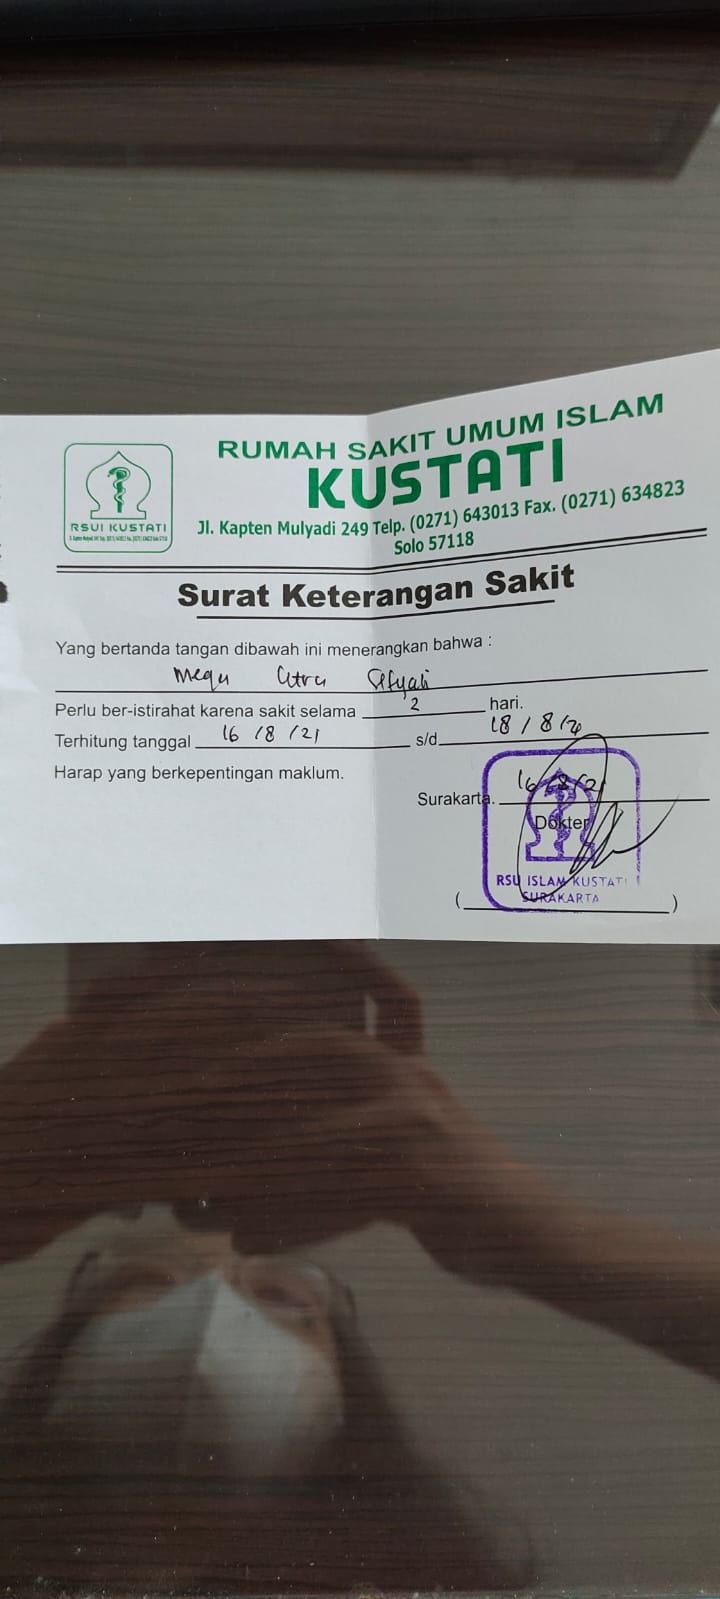 RUMAH SAKIT UMUM ISLAM
KUSTATI
Jl. Kapten Mulyadi 249 Telp. (0271) 643013 Fax. (0271) 634823
Solo 57118
RSUI KUSTATI
Surat Keterangan Sakit
Yang bertanda tangan dibawah ini menerangkan bahwa :
Perlu ber-istirahat karena sakit selama 2 hari.
Terhitung tanggal 16 /8 /21 s/d 18 / 8 /
Harap yang berkepentingan maklum.
Surakarta. 16/8/21
Dokter
RSU ISLAM KUSTATI
SURAKARTA
( )